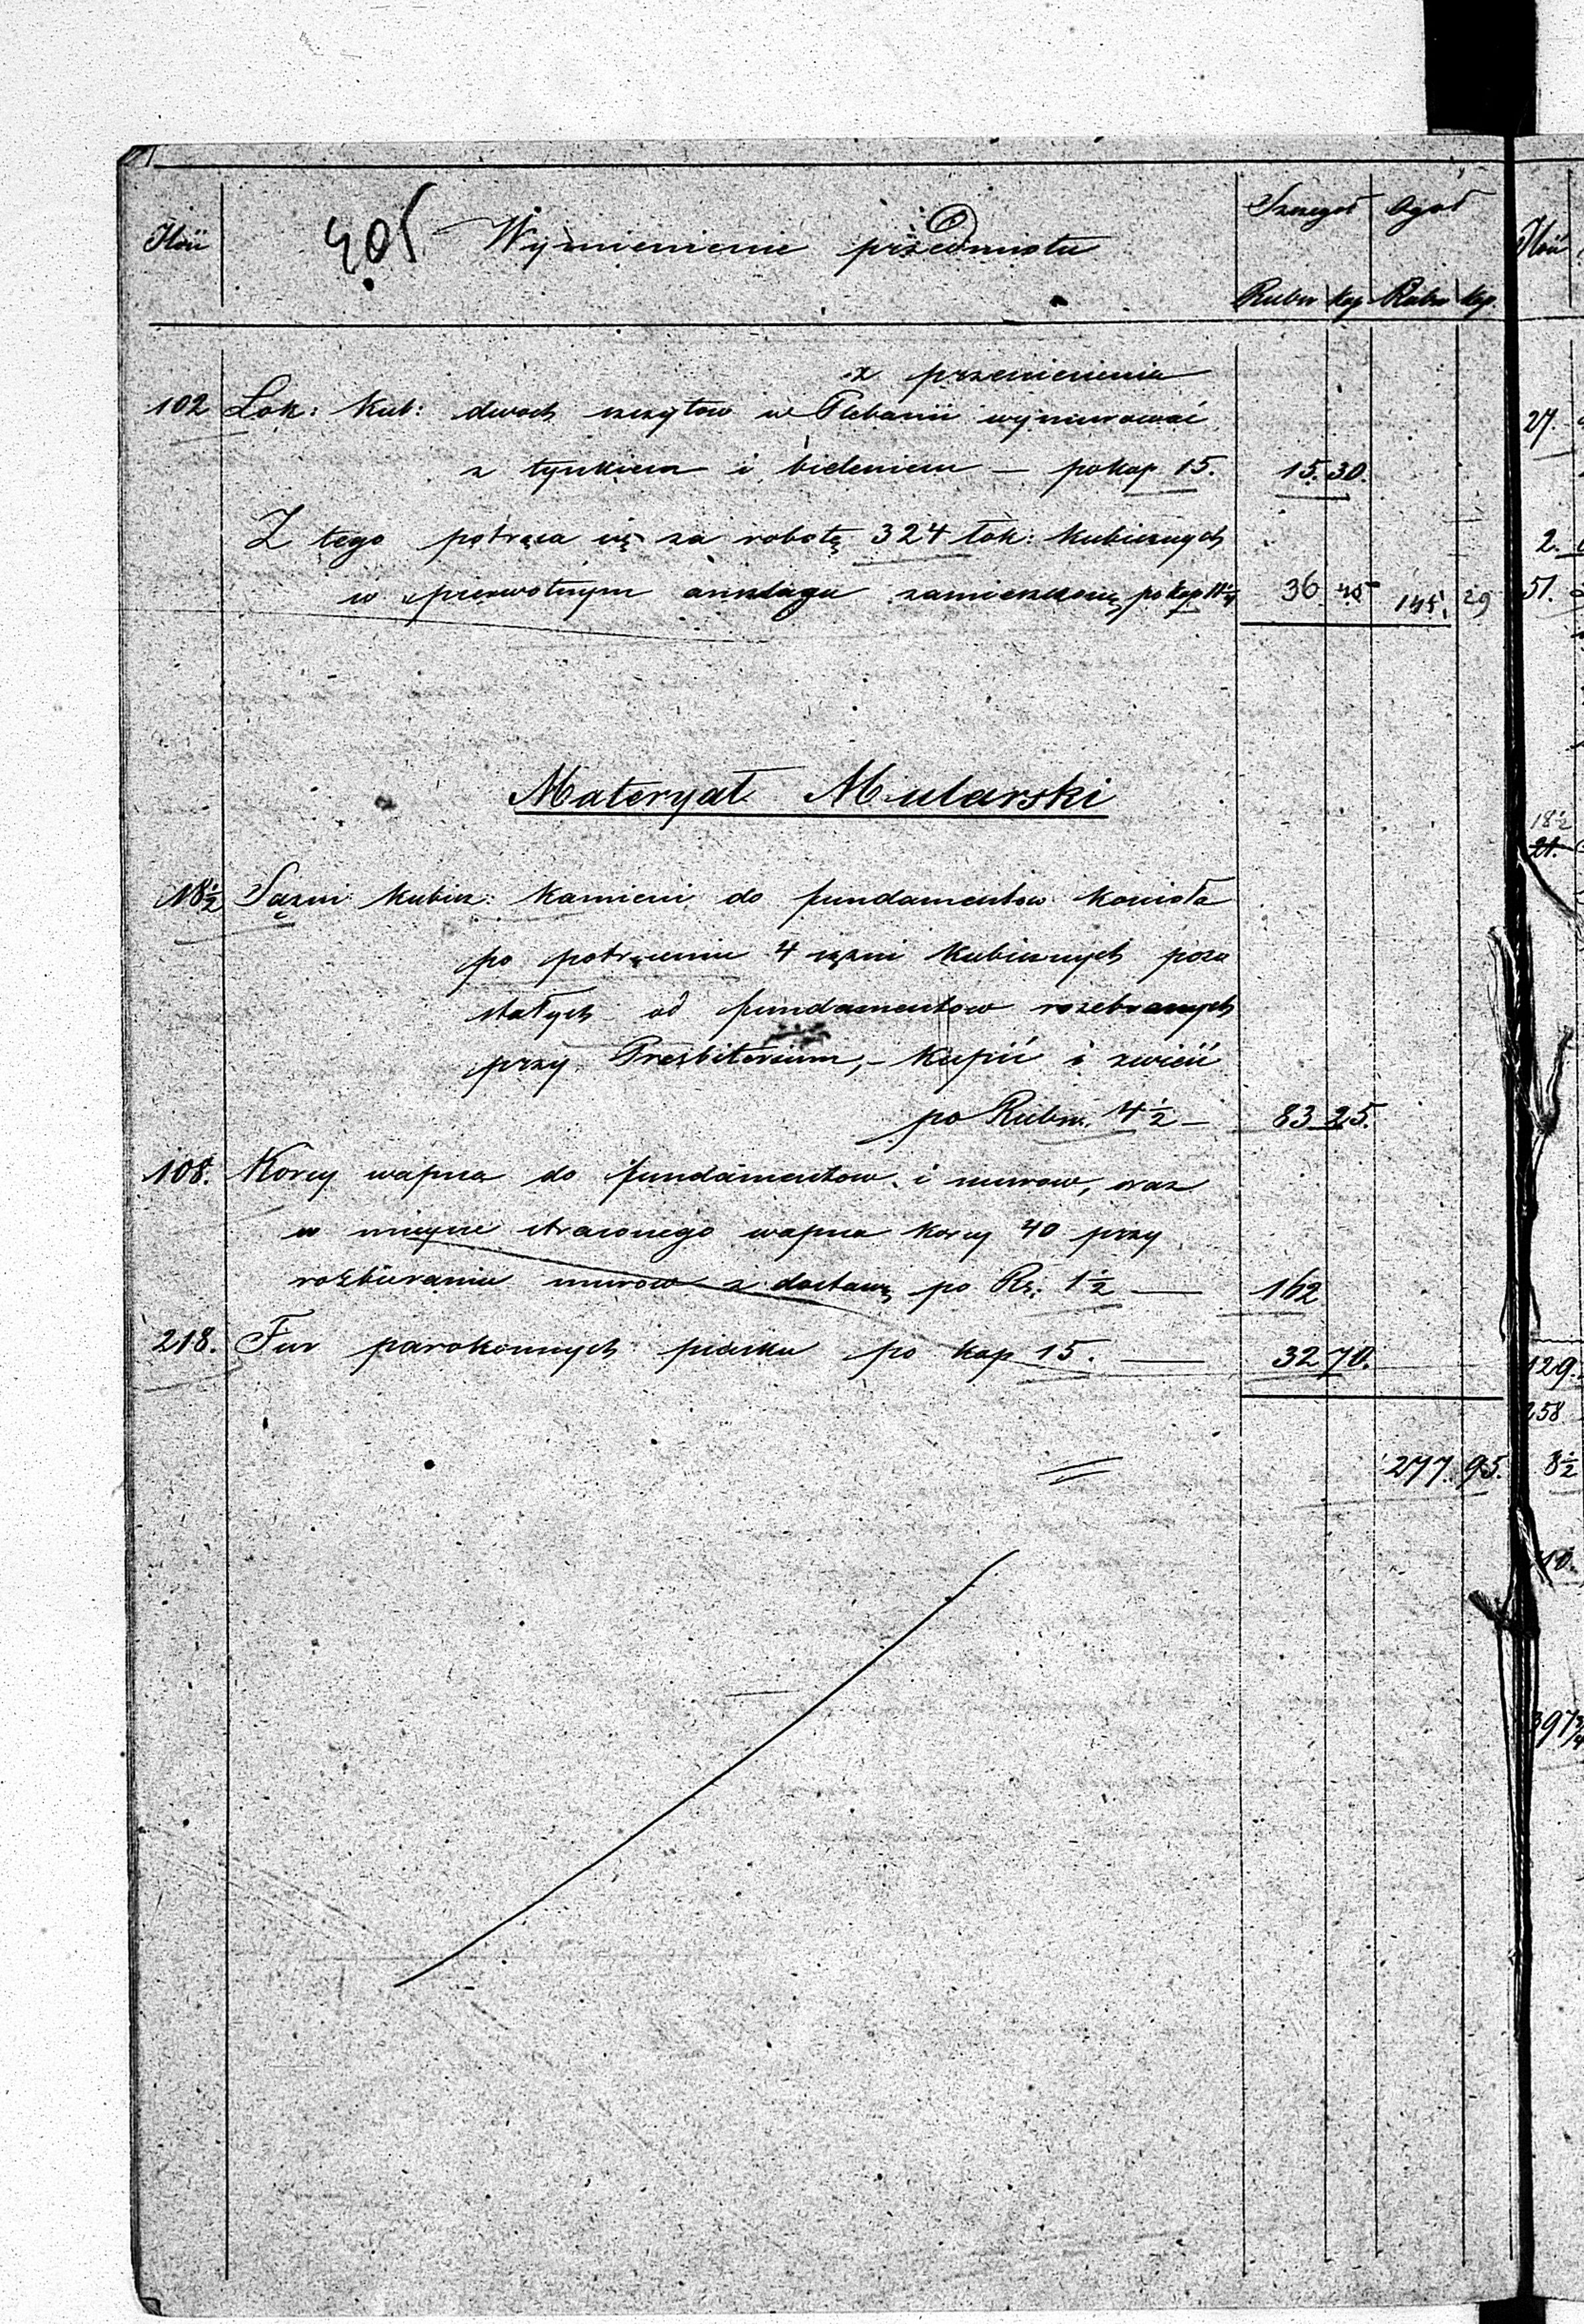 Ilość 405 Wymienienie przedmiotu Szczegół Ogół
Rubsr kop Rubsr kop
z przeniesienia
102 Łok: Kub: dwoch szczytow w Plebanii wymurować
z tynkiem i bieleniem — po kop 15. 15. 30.
Z tego potrąca się za robotę 324 łok: kubicznych
w pierwotnym anszlagu zamieszczoną po kop 11¼ 36 45 145 29
Materyał Mularski
18½ Sążni kubicz: kamieni do fundamentow kościoła
po potrąceniu 4 sążni kubicznych pozo
stałych od fundamentow rozebranych
przy Presbiterium, – kupić i zwieść
po Rubsr. 4½ — 83 25.
108. Korcy wapna do fundamentow i murow, oraz
w miejsce straconego wapna korcy 40 przy
rozbieraniu murow z dostawą po Rs. 1½ — 162
218. Fur parokonnych piasku po kop 15. — 32 70.
277. 95.
27.
2.
51.
18½
21.
129.
258
8½
10.
397¾